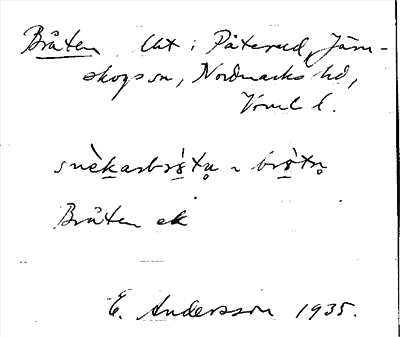 Bråten Ut i Påterud, Järn-
skogs sn, Nordmarks hd,
Vrml l.
snèkarbrɷ́tn ~ brɷ́tn
Bråten ek
E. Andersson 1935.